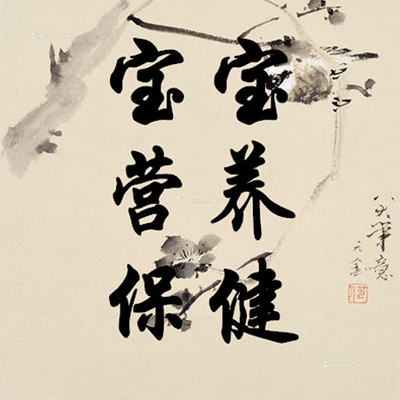 宝宝
营养
保健